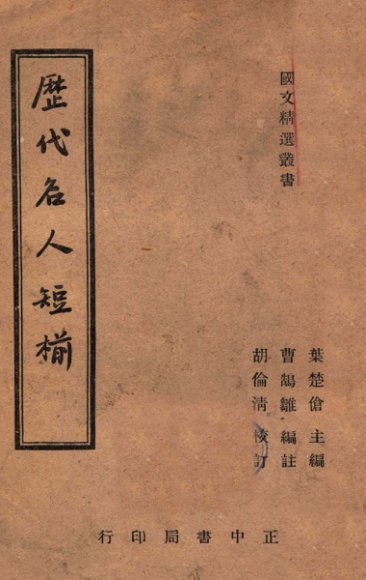 國文精選叢書
葉楚傖 主編
曹鵠雛 編註
胡倫清 校訂
歷代名人短𥳑
正中書局印行